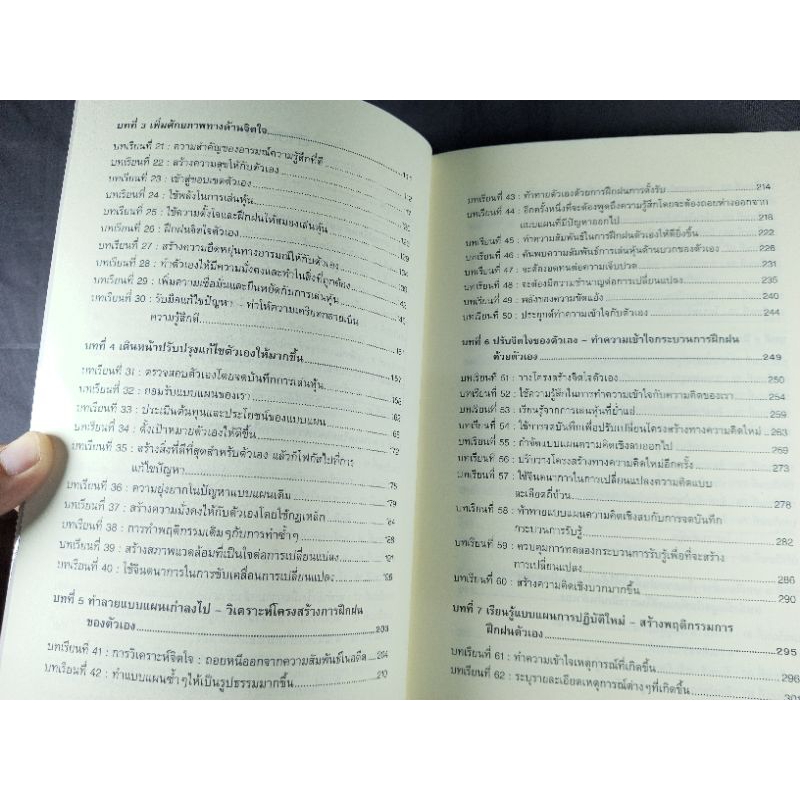 บทที่ 3 เพิ่มศักยภาพทางด้านจิตใจ
บทเรียนที่ 21 : ความสำคัญของอารมณ์ความรู้สึกที่ดี
บทเรียนที่ 22 : สร้างความสุขให้กับตัวเอง
บทเรียนที่ 23 : เข้าสู่ขอบเขตตัวเอง
บทเรียนที่ 24 : ใช้พลังในการเล่นหุ้น
บทเรียนที่ 25 : ใช้ความตั้งใจและฝึกฝนให้สมองเล่นหุ้น
บทเรียนที่ 26 : ฝึกฝนจิตใจตัวเอง
บทเรียนที่ 27 : สร้างความยืดหยุ่นทางอารมณ์ให้กับตัวเอง
บทเรียนที่ 28 : ทำตัวเองให้มีความมั่นคงและทำในสิ่งที่ถูกต้อง
บทเรียนที่ 29 : เพิ่มความเชื่อมั่นและยืนหยัดกับการเล่นหุ้น
บทเรียนที่ 30 : รับมือแก้ไขปัญหา - ทำให้ความเครียดกลายเป็น
ความรู้สึกดี
บทที่ 4 เดินหน้าปรับปรุงแก้ไขตัวเองให้มากขึ้น
บทเรียนที่ 31 : ตรวจสอบตัวเองโดยจดบันทึกการเล่นหุ้น
บทเรียนที่ 32 : ยอมรับแบบแผนของเรา
บทเรียนที่ 33 : ประเมินต้นทุนและประโยชน์ของแบบแผน
บทเรียนที่ 34 : ตั้งเป้าหมายตัวเองให้ดีขึ้น
บทเรียนที่ 35 : สร้างสิ่งที่ดีที่สุดสำหรับตัวเอง แล้วก็โฟกัสไปที่การ
แก้ไขปัญหา
บทเรียนที่ 36 : ความยุ่งยากในปัญหาแบบแผนเดิม
บทเรียนที่ 37 : สร้างความมั่งคงให้กับตัวเองโดยใช้กฎเหล็ก
บทเรียนที่ 38 : การทำพฤติกรรมเดิมๆกับการทำซ้ำๆ
บทเรียนที่ 39 : สร้างสภาพแวดล้อมที่เป็นใจต่อการเปลี่ยนแปลง
บทเรียนที่ 40 : ใช้จินตนาการในการขับเคลื่อนการเปลี่ยนแปลง
บทที่ 5 ทำลายแบบแผนเก่าลงไป - วิเคราะห์โครงสร้างการฝึกฝน
ของตัวเอง
บทเรียนที่ 41 : การวิเคราะห์จิตใจ : ถอยหนีออกจากความสัมพันธ์ในอดีต
บทเรียนที่ 42 : ทำแบบแผนซ้ำๆให้เป็นรูปธรรมมากขึ้น 210
บทเรียนที่ 43 : ท้าทายตัวเองด้วยการฝึกฝนการตั้งรับ 214
บทเรียนที่ 44 : อีกครั้งหนึ่งที่จะต้องพูดถึงความรู้สึกโดยจะต้องถอยห่างออกจาก
แบบแผนที่มีปัญหาออกไป 218
บทเรียนที่ 45 : ทำความสัมพันธ์ในการฝึกฝนตัวเองให้ดียิ่งขึ้น 222
บทเรียนที่ 46 : ค้นพบความสัมพันธ์การเล่นหุ้นด้านบวกของตัวเอง 226
บทเรียนที่ 47 : จะต้องอดทนต่อความเจ็บปวด 231
บทเรียนที่ 48 : จะต้องมีความชำนาญต่อการเปลี่ยนแปลง 235
บทเรียนที่ 49 : พลังของความขัดแย้ง 240
บทเรียนที่ 50 : ประยุกต์ทำความเข้าใจกับตัวเอง 244
บทที่ 6 ปรับจิตใจของตัวเอง - ทำความเข้าใจกระบวนการฝึกฝน
ด้วยตัวเอง 249
บทเรียนที่ 51 : วางโครงสร้างจิตใจตัวเอง 250
บทเรียนที่ 52 : ใช้ความรู้สึกในการทำความเข้าใจกับความคิดของเรา 254
บทเรียนที่ 53 : เรียนรู้จากการเล่นหุ้นที่ย่ำแย่ 259
บทเรียนที่ 54 : ใช้การจดบันทึกเพื่อปรับเปลี่ยนโครงสร้างทางความคิดใหม่ 263
บทเรียนที่ 55 : กำจัดแบบแผนความคิดเชิงลบออกไป 269
บทเรียนที่ 56 : ปรับวางโครงสร้างทางความคิดใหม่อีกครั้ง 273
บทเรียนที่ 57 : ใช้จินตนาการในการเปลี่ยนแปลงความคิดแบบ
ละเอียดถี่ถ้วน 278
บทเรียนที่ 58 : ท้าทายแบบแผนความคิดเชิงลบกับการจดบันทึก
กระบวนการรับรู้ 282
บทเรียนที่ 59 : ควบคุมการทดลองกระบวนการรับรู้เพื่อที่จะสร้าง
การเปลี่ยนแปลง 286
บทเรียนที่ 60 : สร้างความคิดเชิงบวกมากขึ้น 290
บทที่ 7 เรียนรู้แบบแผนการปฏิบัติใหม่ - สร้างพฤติกรรมการ
ฝึกฝนตัวเอง 295
บทเรียนที่ 61 : ทำความเข้าใจเหตุการณ์ที่เกิดขึ้น 296
บทเรียนที่ 62 : ระบุรายละเอียดเหตุการณ์ต่างๆที่เกิดขึ้น